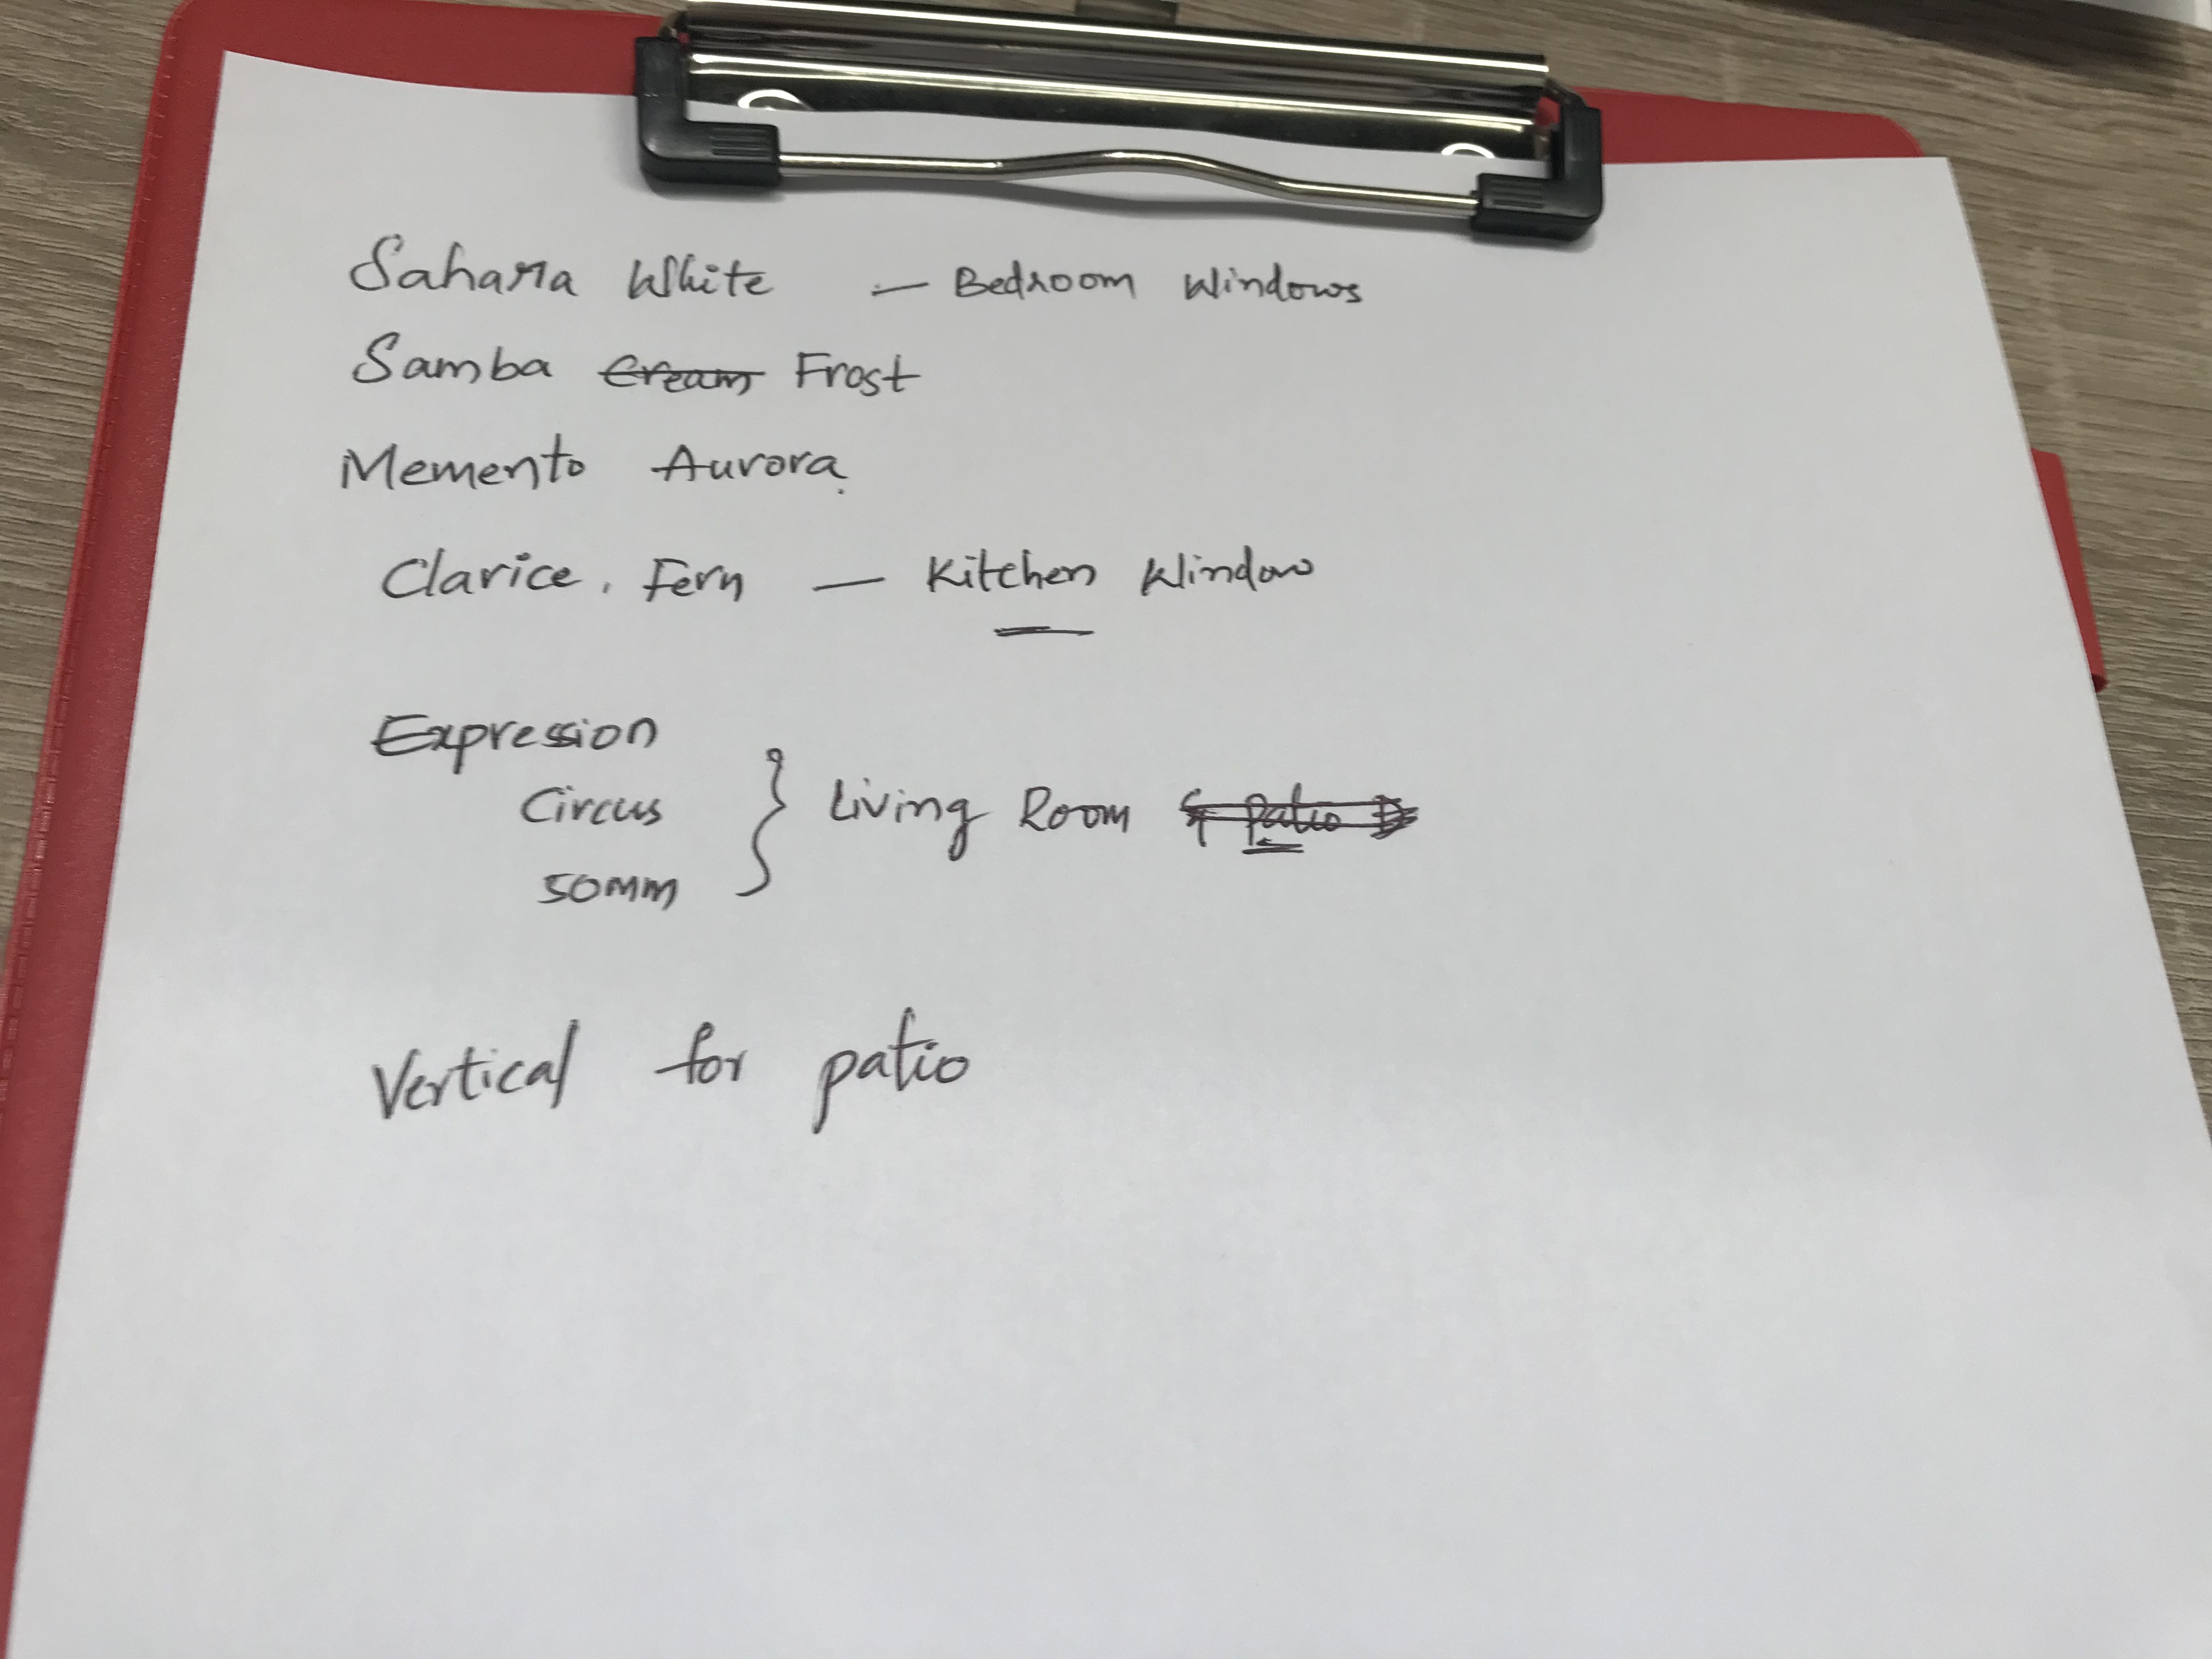 Sahara White — Bedroom Windows
Samba Cream Frost
Memento Aurora
Clarice, Fern — Kitchen Window
Expression
Circus
50mm
} Living Room & patio
Vertical for patio